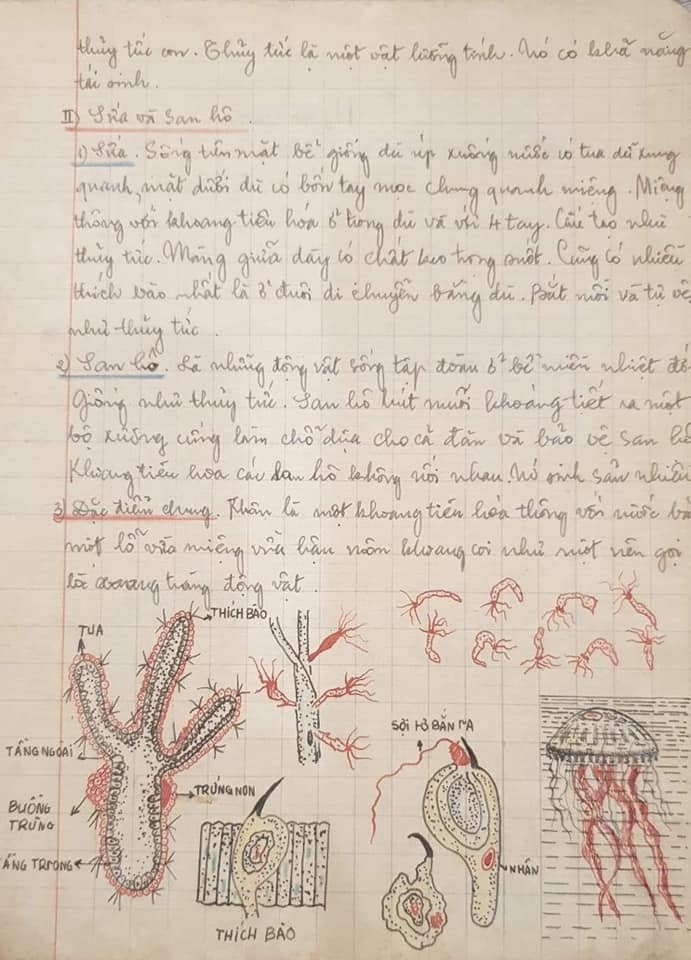 thủy tức con. Thủy tức là một vật lưỡng tính. Nó có khả năng
tái sinh.
II) Sứa và San hô.
1) Sứa. Sống trên mặt bể giống dù úp xuống nước có tua dù xung
quanh, mặt dưới dù có bốn tay mọc chung quanh miệng. Miệng
thông với khoang tiêu hóa ở trong dù và với 4 tay. Cấu tạo như
thủy tức. Màng giữa dày có chất keo trong suốt. Cũng có nhiều
thích bào nhất là ở đuôi di chuyển bằng dù. Bắt mồi và tự vệ
như thủy tức.
2) San hô. Là những động vật sống tập đoàn ở bể miền nhiệt đới
Giống như thủy tức. San hô hút muối khoáng tiết ra một
bộ xương cứng làm chỗ dựa cho cả đàn và bảo vệ san hô
Khoang tiêu hóa các san hô không nối nhau. Nó sinh sản nhiều
3) Đặc điểm chung. Thân là một khoang tiêu hóa thông với nước
một lỗ vừa miệng vừa hậu môn khoang coi như ruột nên gọi
là xoang tràng động vật.
THÍCH BÀO
TUA
TẦNG NGOÀI
BUỒNG TRỨNG
TRỨNG NON
ẦNG TRONG
THÍCH BÀO
SỢI TƠ BẮN RA
NHÂN